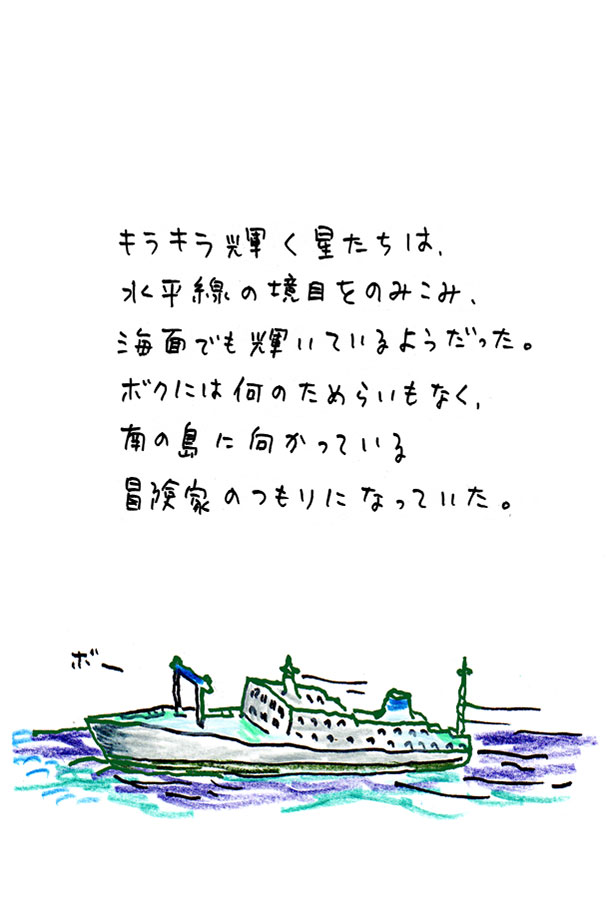 キラキラ輝く星たちは、
水平線の境目をのみこみ、
海面でも輝いているようだった。
ボクには何のためらいもなく、
南の島に向かっている
冒険家のつもりになっていた。
ボー